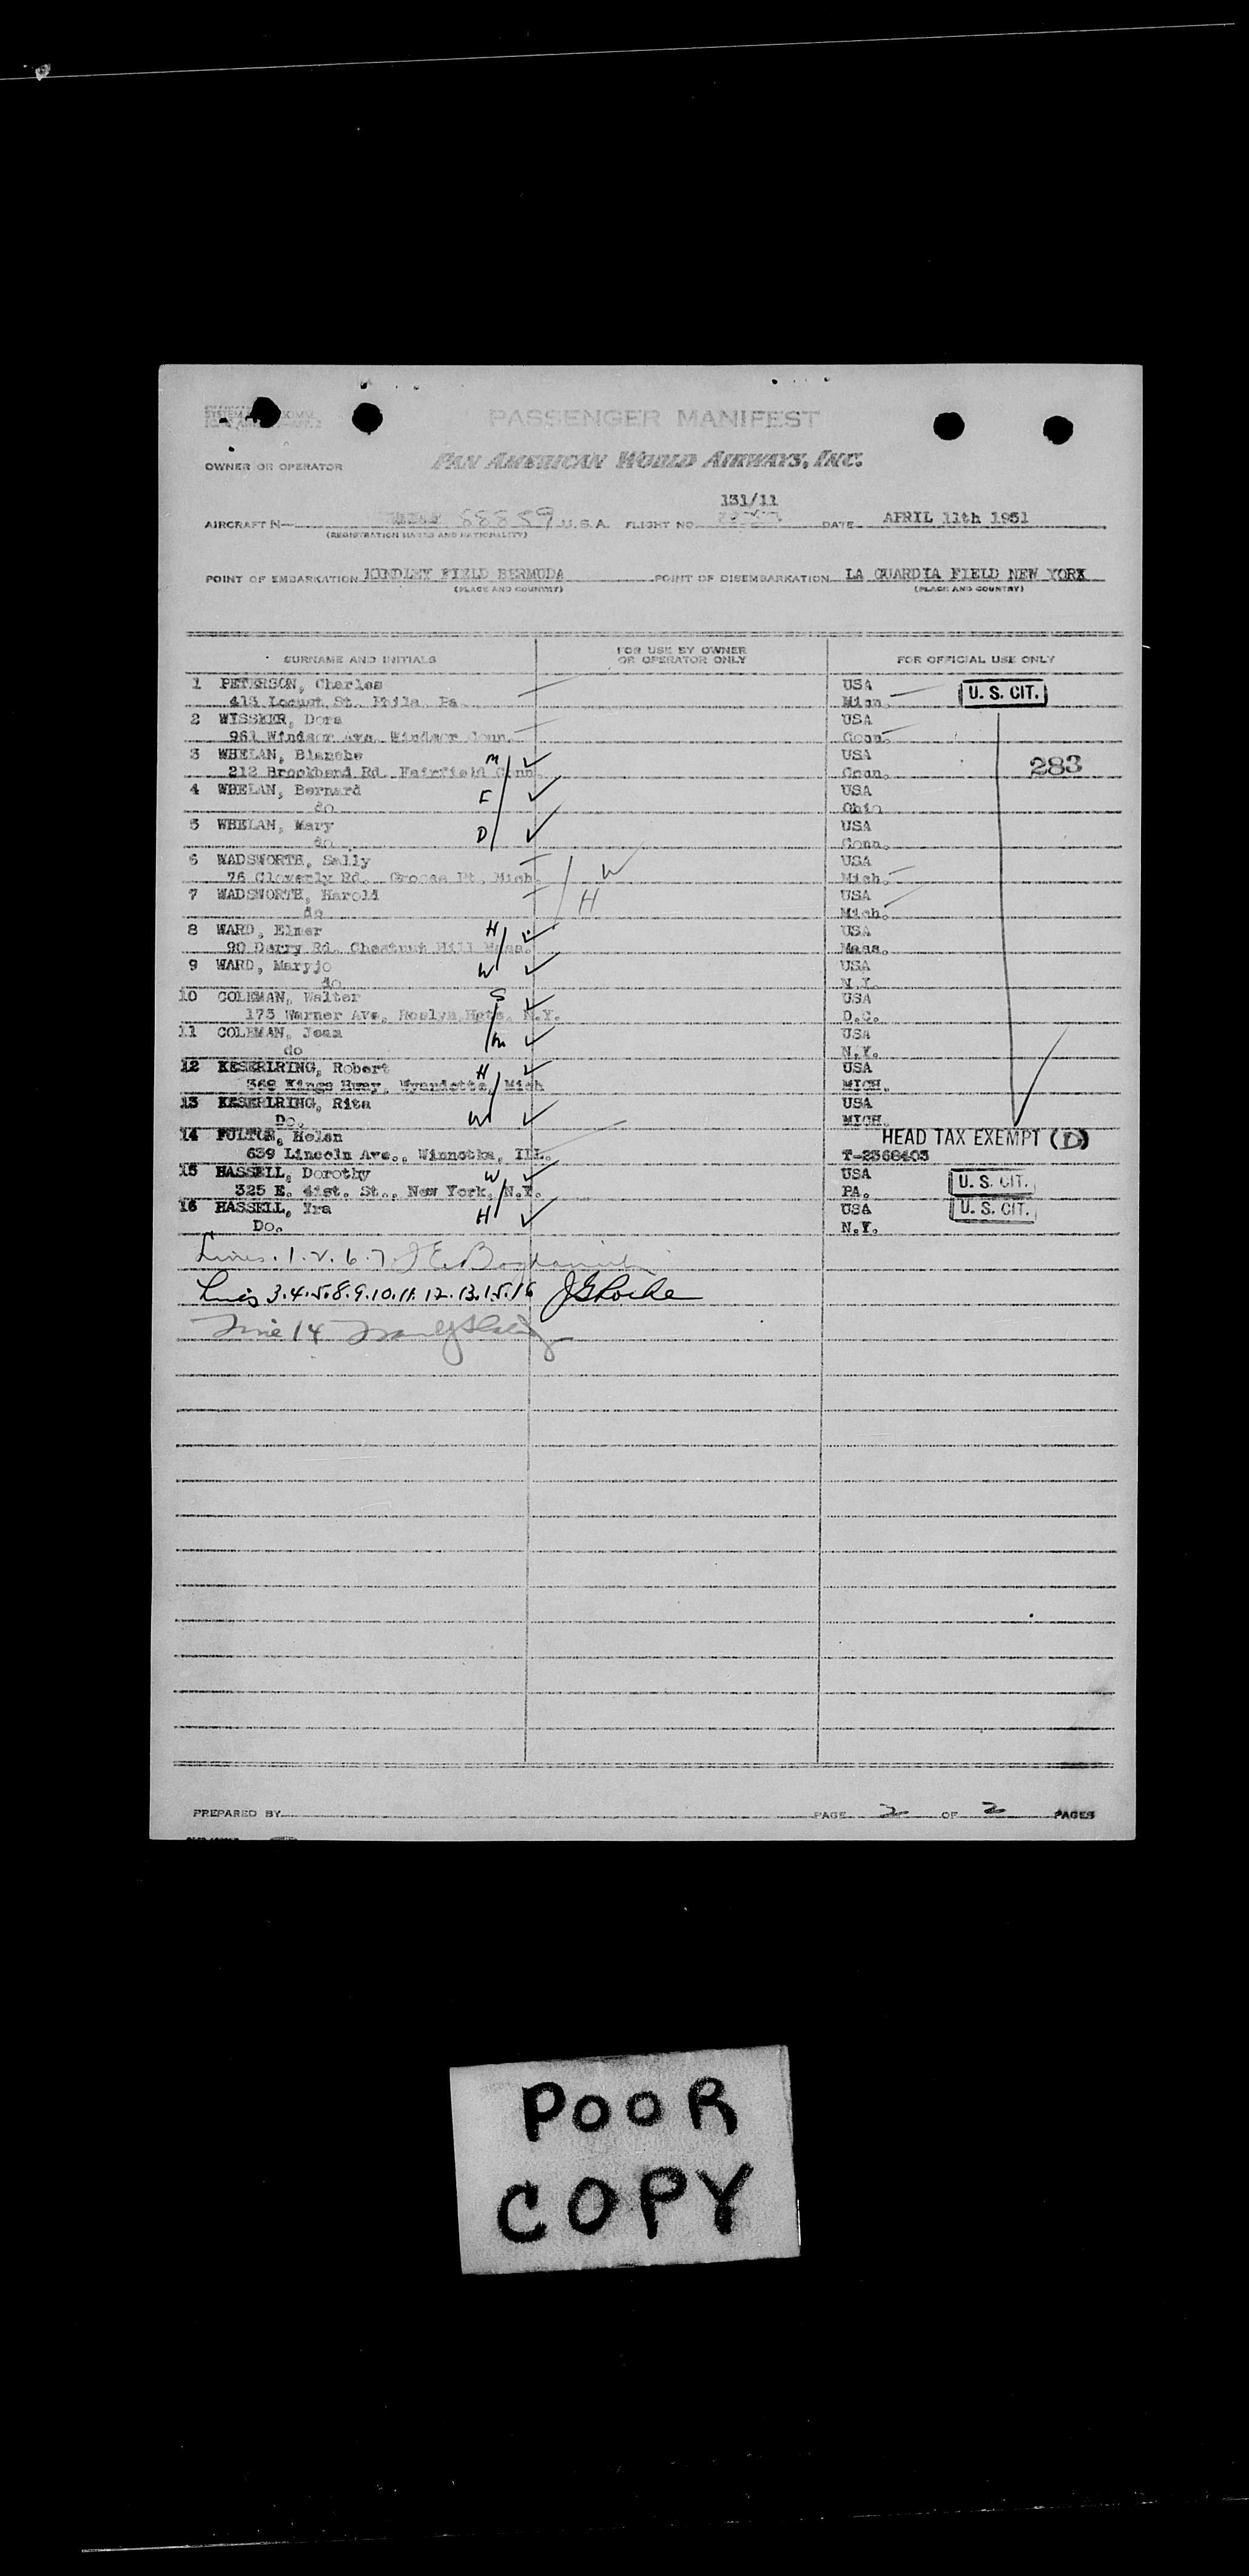 PASSENGER MANIFEST
OWNER OR OPERATOR PAN AMERICAN WORLD AIRWAYS, INC.
131/11
AIRCRAFT N— 88859 U.S.A. FLIGHT NO. DATE APRIL 11th 1951
(REGISTRATION MARKS AND NATIONALITY)
POINT OF EMBARKATION KINDLEY FIELD BERMUDA POINT OF DISEMBARKATION LA GUARDIA FIELD NEW YORK
(PLACE AND COUNTRY) (PLACE AND COUNTRY)
SURNAME AND INITIALS FOR USE BY OWNER OR OPERATOR ONLY FOR OFFICIAL USE ONLY
1 PETERSON, Charles USA U. S. CIT.
415 Locust St. Phila Pa Minn.
2 WISSKER, Dora USA
961 Windsor Ave. Windsor Conn. Conn.
3 WHELAN, Blanche M USA
212 Brookbend Rd. Fairfield Conn. Conn. 283
4 WHELAN, Bernard F USA
do Ohio
5 WHELAN, Mary D USA
do Conn.
6 WADSWORTH, Sally W USA
76 Cloverly Rd. Grosse Pt. Mich. Mich.
7 WADSWORTH, Harold H USA
do Mich.
8 WARD, Elmer H USA
90 Derry Rd. Chestnut Hill Mass. Mass.
9 WARD, Maryjo W USA
do N.Y.
10 COLEMAN, Walter S USA
175 Warner Ave, Roslyn Hgts, N.Y. D.C.
11 COLEMAN, Jean M USA
do N.Y.
12 KESERLRING, Robert H USA
368 Kings Hwy, Wyandotte, Mich MICH.
13 KESERLRING, Rita W USA
Do. MICH.
14 FULTON, Helen HEAD TAX EXEMPT (D)
639 Lincoln Ave., Winnetka, ILL. T-2368403
15 HASSELL, Dorothy W USA U. S. CIT.
325 E. 41st. St., New York, N.Y. PA.
16 HASSELL, Ira H USA U. S. CIT.
Do. N.Y.
Lines. 1. 2. 6. 7. J E.
Lines 3.4.5.8.9.10.11.12.13.15.16
Line 14
PREPARED BY PAGE 2 OF 2 PAGES
POOR
COPY